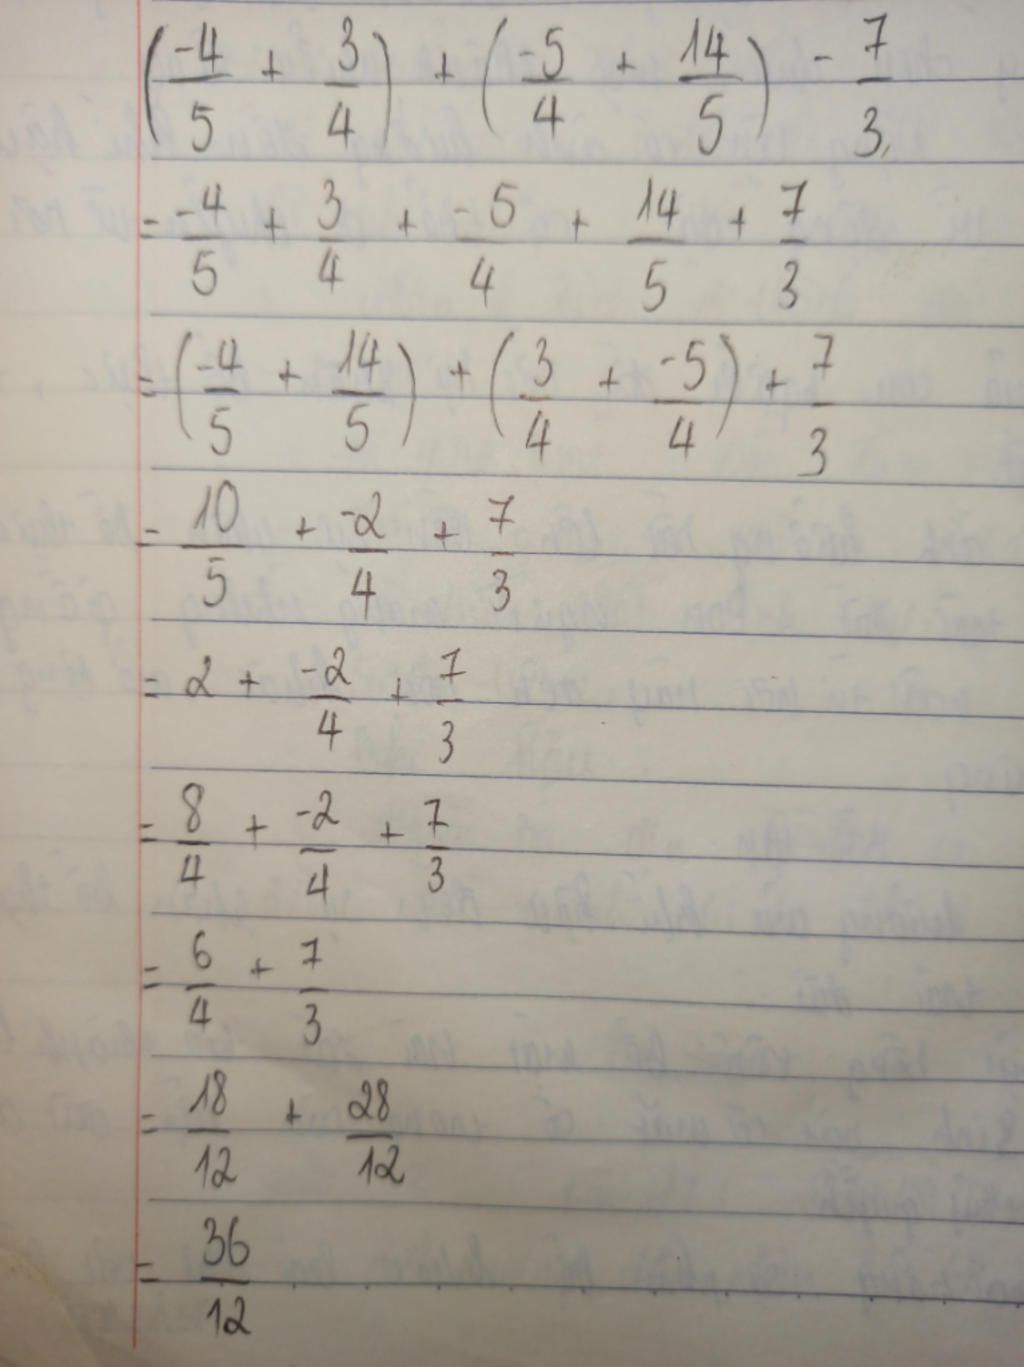 (-4/5 + 3/4) + (-5/4 + 14/5) - 7/3
= -4/5 + 3/4 + -5/4 + 14/5 + 7/3
= (-4/5 + 14/5) + (3/4 + -5/4) + 7/3
= 10/5 + -2/4 + 7/3
= 2 + -2/4 + 7/3
= 8/4 + -2/4 + 7/3
= 6/4 + 7/3
= 18/12 + 28/12
= 36/12